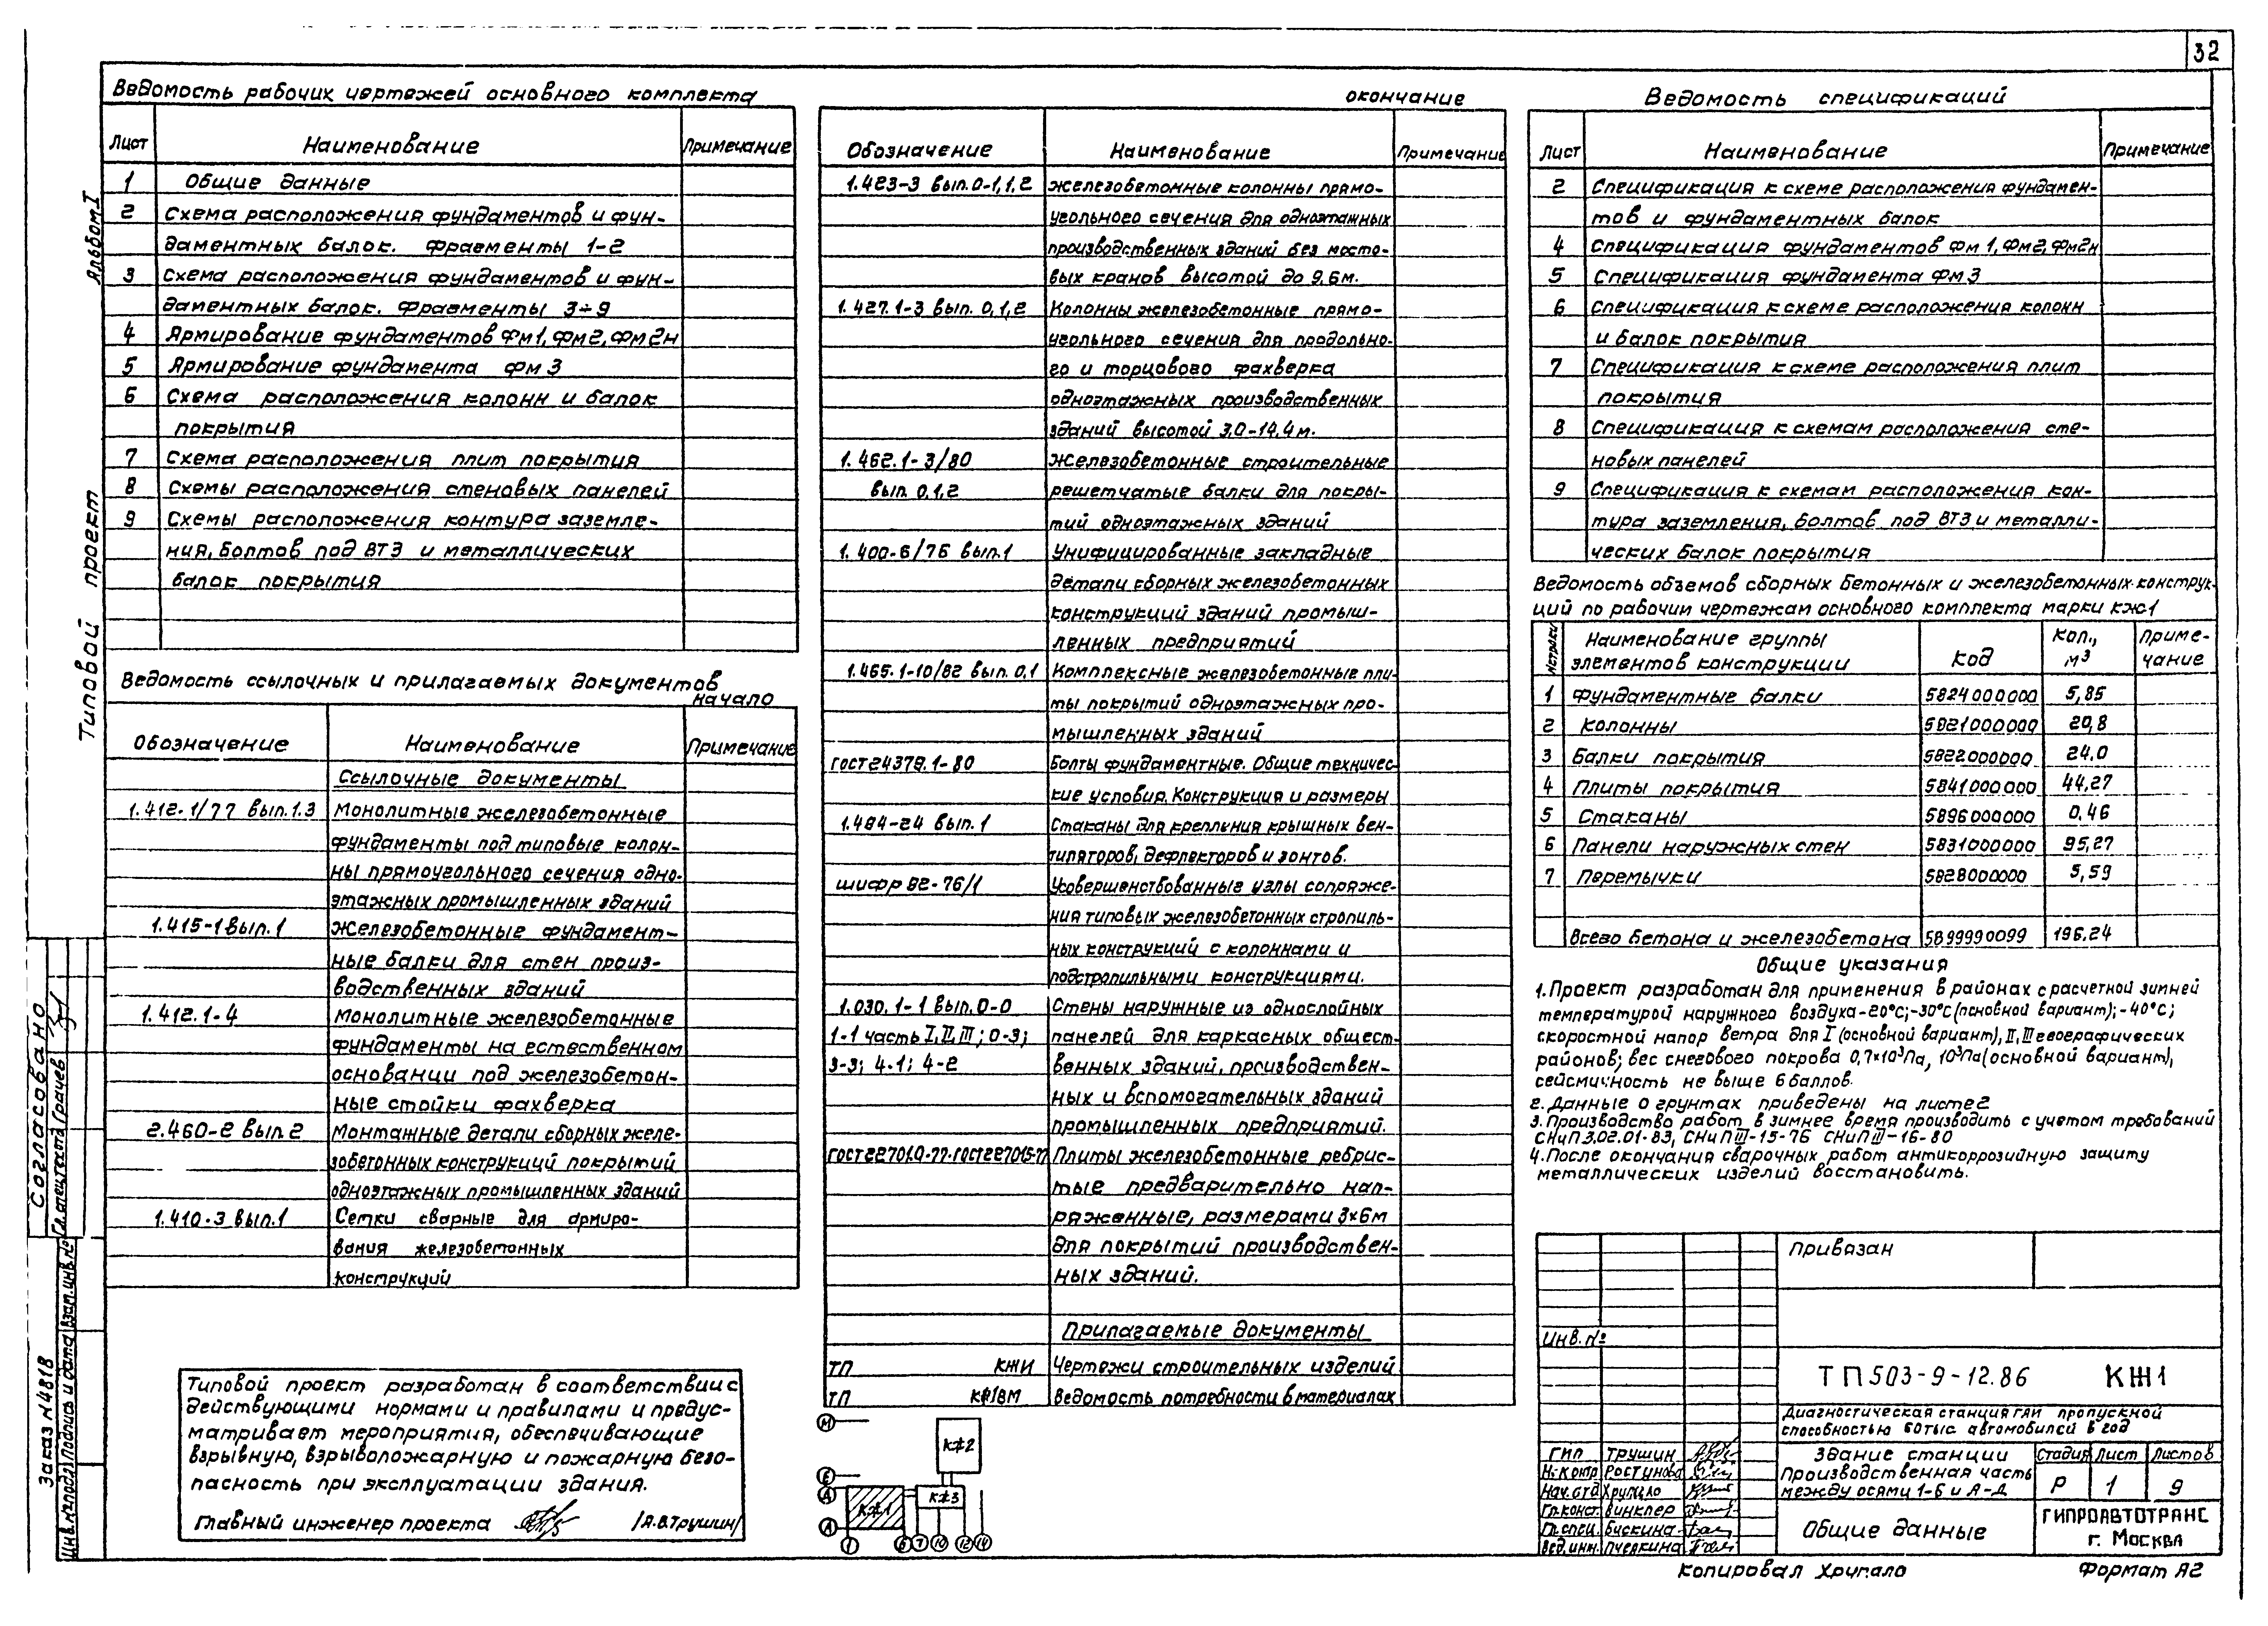 32
Ведомость рабочих чертежей основного комплекта
Лист Наименование Примечание
1 Общие данные
2 Схема расположения фундаментов и фун-
даментных балок. Фрагменты 1-2
3 Схема расположения фундаментов и фун-
даментных балок. Фрагменты 3÷9
4 Армирование фундаментов Фм1, Фм2, Фм2н
5 Армирование фундамента Фм3
6 Схема расположения колонн и балок
покрытия
7 Схема расположения плит покрытия
8 Схемы расположения стеновых панелей
9 Схемы расположения контура заземле-
ния, болтов под ВТЗ и металлических
балок покрытия
Ведомость ссылочных и прилагаемых документов
начало
Обозначение Наименование Примечание
Ссылочные документы
1.412-1/77 вып.1.3 Монолитные железобетонные
фундаменты под типовые колон-
ны прямоугольного сечения одно-
этажных промышленных зданий
1.415-1 вып.1 Железобетонные фундамент-
ные балки для стен произ-
водственных зданий
1.412.1-4 Монолитные железобетонные
фундаменты на естественном
основании под железобетон-
ные стойки фахверка
2.460-2 вып.2 Монтажные детали сборных желе-
зобетонных конструкций покрытий
одноэтажных промышленных зданий
1.410-3 вып.1 Сетки сварные для армиро-
вания железобетонных
конструкций
Типовой проект разработан в соответствии с
действующими нормами и правилами и предус-
матривает мероприятия, обеспечивающие
взрывную, взрывопожарную и пожарную безо-
пасность при эксплуатации здания.
Главный инженер проекта /А.В.Трушин/
окончание
Обозначение Наименование Примечание
1.423-3 вып.0-1,1,2 Железобетонные колонны прямо-
угольного сечения для одноэтажных
производственных зданий без мосто-
вых кранов высотой до 9,6 м.
1.427.1-3 вып. 0,1,2 Колонны железобетонные прямо-
угольного сечения для продольно-
го и торцового фахверка
одноэтажных производственных
зданий высотой 3,0-14,4 м.
1.462.1-3/80 Железобетонные строительные
вып. 0,1,2 решетчатые балки для покры-
тий одноэтажных зданий
1.400-6/76 вып.1 Унифицированные закладные
детали сборных железобетонных
конструкций зданий промыш-
ленных предприятий
1.465.1-10/82 вып. 0,1 Комплексные железобетонные пли-
ты покрытий одноэтажных про-
мышленных зданий
ГОСТ 24379.1-80 Болты фундаментные. Общие техничес-
кие условия. Конструкция и размеры
1.494-24 вып.1 Стаканы для крепления крышных вен-
тиляторов, дефлекторов и зонтов.
шифр 82-76/1 Усовершенствованные узлы сопряже-
ния типовых железобетонных стропиль-
ных конструкций с колоннами и
подстропильными конструкциями.
1.030.1-1 вып.0-0 Стены наружные из однослойных
1-1 часть I, II, III; 0-3; панелей для каркасных общест-
3-3; 4-1; 4-2 венных зданий, производствен-
ных и вспомогательных зданий
промышленных предприятий.
ГОСТ 22701.0-77-ГОСТ 22701.5-77 Плиты железобетонные ребрис-
тые предварительно нап-
ряженные, размерами 3×6м
для покрытий производствен-
ных зданий.
Прилагаемые документы
ТП КЖИ Чертежи строительных изделий
ТП КЖ1ВМ Ведомость потребности в материалах
М
Е
Д
А
КЖ2
КЖ1
КЖ3
1 6 7 10 12 14
Ведомость спецификаций
Лист Наименование Примечание
2 Спецификация к схеме расположения фундамен-
тов и фундаментных балок
4 Спецификация фундаментов Фм1, Фм2, Фм2н
5 Спецификация фундамента Фм3
6 Спецификация к схеме расположения колонн
и балок покрытия
7 Спецификация к схеме расположения плит
покрытия
8 Спецификация к схемам расположения сте-
новых панелей
9 Спецификация к схемам расположения кон-
тура заземления, болтов под ВТЗ и металли-
ческих балок покрытия
Ведомость объемов сборных бетонных и железобетонных конструк-
ций по рабочим чертежам основного комплекта марки КЖ1
№строки Наименование группы элементов конструкции Код Кол., м³ Приме-чание
1 Фундаментные балки 5824000000 5,85
2 Колонны 5821000000 20,8
3 Балки покрытия 5822000000 24,0
4 Плиты покрытия 5841000000 44,27
5 Стаканы 5896000000 0,46
6 Панели наружных стен 5831000000 95,27
7 Перемычки 5828000000 5,59
Всего бетона и железобетона 5899990099 196,24
Общие указания
1. Проект разработан для применения в районах с расчетной зимней
температурой наружного воздуха -20°С; -30°С (основной вариант); -40°С;
скоростной напор ветра для I (основной вариант), II, III географических
районов; вес снегового покрова 0,7×10³Па, 10³Па (основной вариант),
сейсмичность не выше 6 баллов.
2. Данные о грунтах приведены на листе 2
3. Производство работ в зимнее время производить с учетом требований
СНиП 3.02.01-83, СНиП III-15-76 СНиП III-16-80
4. После окончания сварочных работ антикоррозийную защиту
металлических изделий восстановить.
Привязан
Инв.№
ТП 503-9-12.86 КЖ1
Диагностическая станция ГАИ пропускной
способностью 60 тыс. автомобилей в год
ГИП Трушин
Н.контр. Ростунова
Нач.отд. Хрупало
Гл.конс. Винклер
Гл.спец. Бускина
Вед.инж. Пчелкина
Здание станции
Производственная часть
между осями 1-6 и А-Д
Стадия Лист Листов
Р 1 9
Общие данные
ГИПРОАВТОТРАНС
г. Москва
Копировал Хрупало Формат А2
Альбом I
Типовой проект
Согласовано
Гл.спец.тех.отд. Грачев
Взам.инв.№
Подпись и дата
Инв.№ подл.
Заказ №4818